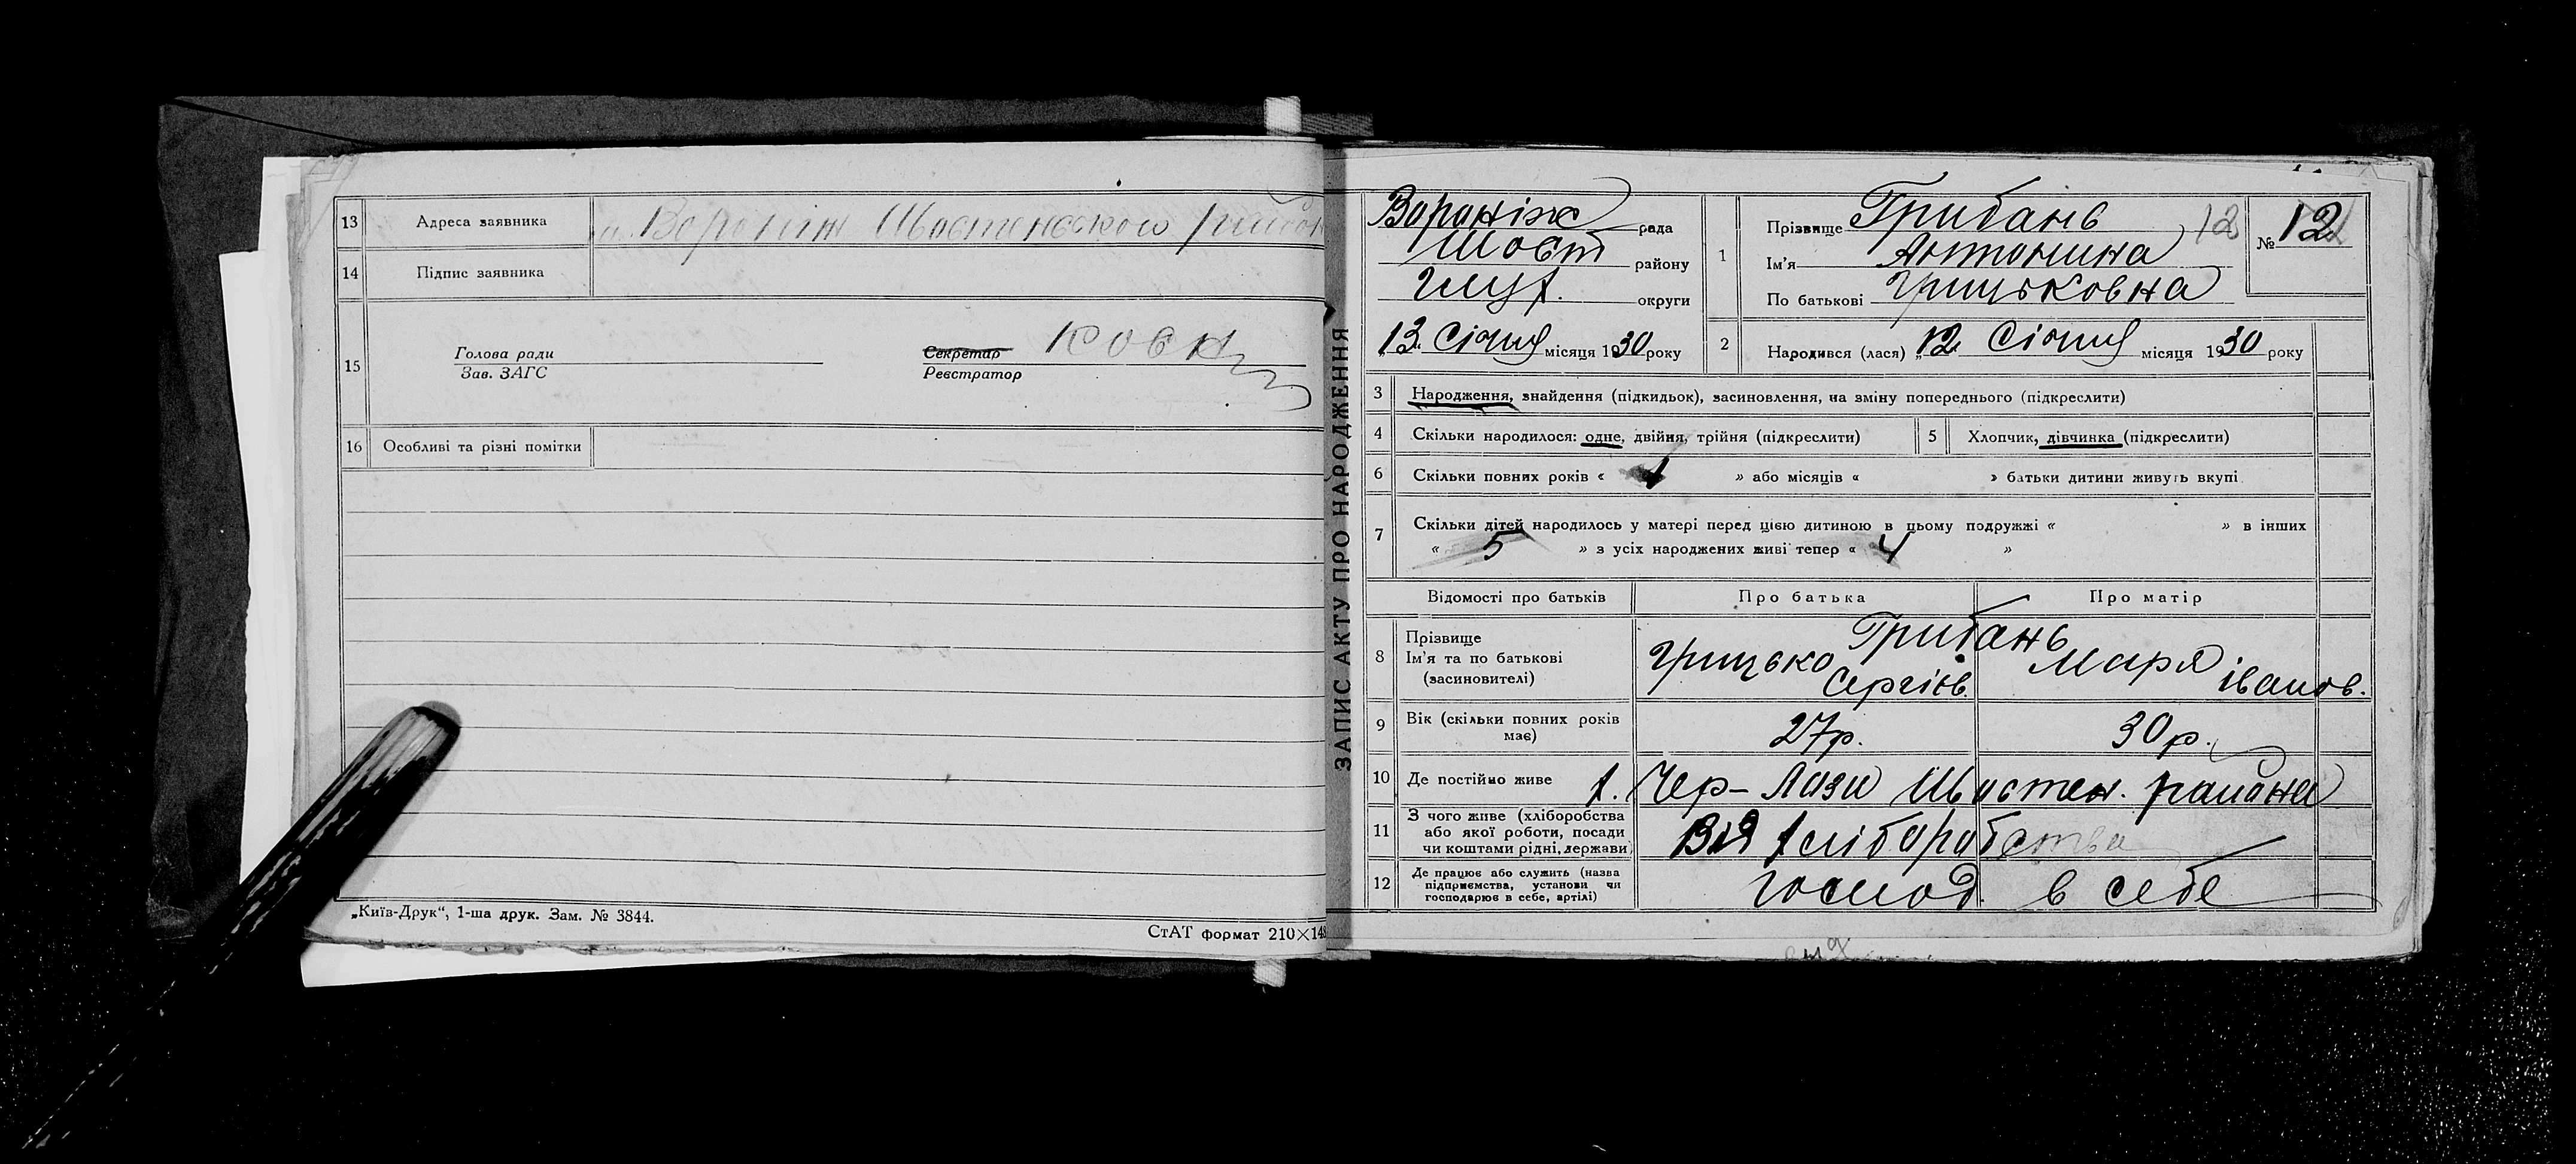 13 Адреса заявника м. Вороніж Шостенського район
14 Підпис заявника
15 Голова ради Секретар
Зав. ЗАГС Реєстратор
16 Особливі та різні помітки
„Київ-Друк“, 1-ша друк. Зам. № 3844.
СтАТ формат 210×148
ЗАПИС АКТУ ПРО НАРОДЖЕННЯ
Вороніж рада
Шост району
Глух. округи
13 Січня місяця 1930 року
1 Прізвище Грибань 12
Ім'я Антонина
По батькові Грицьковна
№ 12
2 Народився (лася) „12 Січня місяця 1930 року
3 Народження, знайдення (підкидьок), засиновлення, на зміну попереднього (підкреслити)
4 Скільки народилося: одне, двійня, трійня (підкреслити) 5 Хлопчик, дівчинка (підкреслити)
6 Скільки повних років « » або місяців « » батьки дитини живуть вкупі
7 Скільки дітей народилось у матері перед цією дитиною в цьому подружжі « » в інших
« 5 » з усіх народжених живі тепер « 4 »
Відомості про батьків Про батька Про матір
8 Прізвище Грибань
Ім'я та по батькові Грицько Мария
(засиновителі) Сергіїв. Іванов.
9 Вік (скільки повних років має) 27 р. 30 р.
10 Де постійно живе х. Чер-Лози Шостен. района
11 З чого живе (хліборобства або якої роботи, посади чи коштами рідні, держави) Від хліборобства
12 Де працює або служить (назва підприємства, установи чи господарює в себе, артілі) господ. в себе